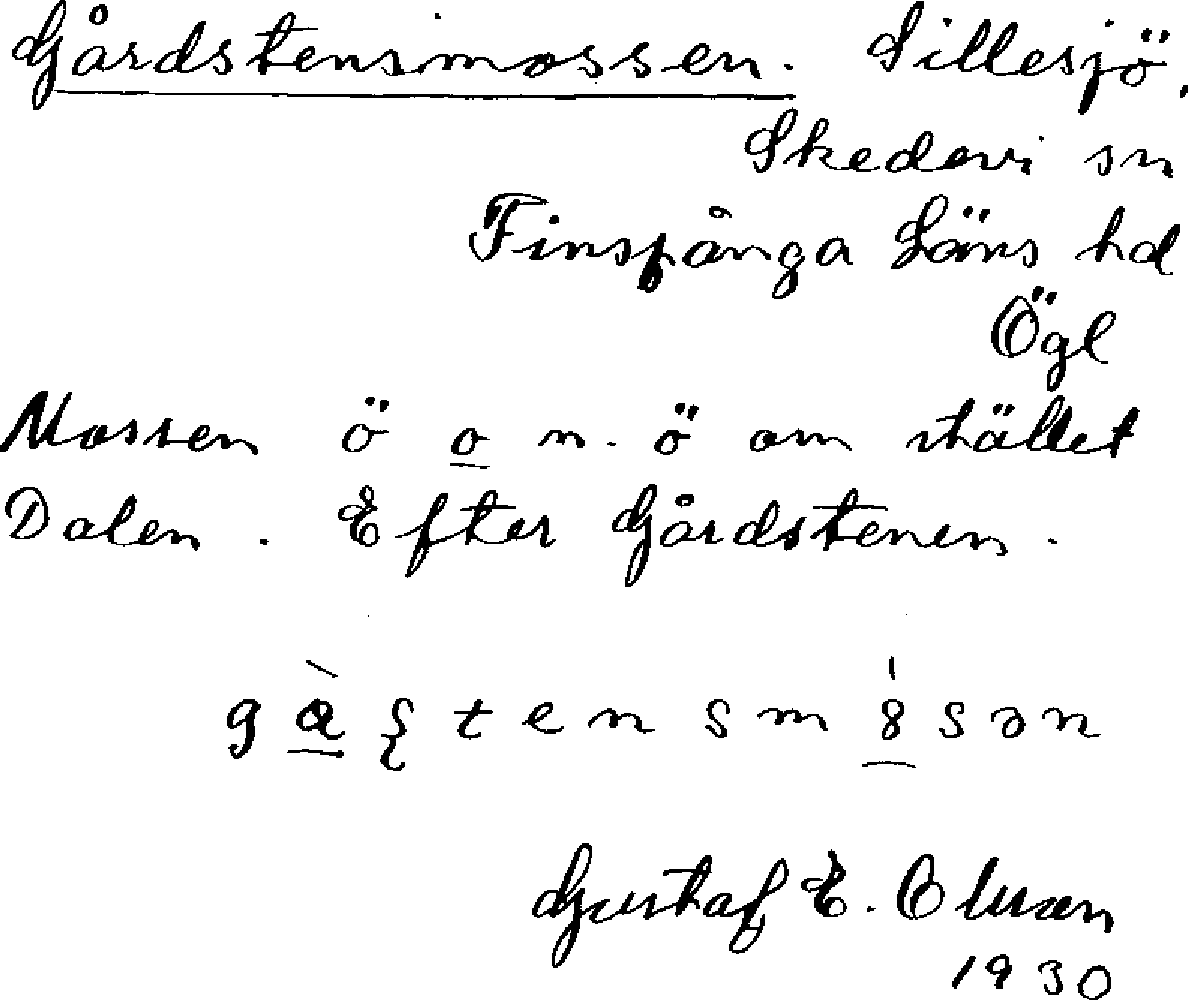 Gårdstensmossen. Sillesjö,
Skedevi sn
Finspånga Läns hd
Ögl
Mossen ö o n. ö om stället
Dalen. Efter Gårdstenen.
Gustaf E. Olsson
1930